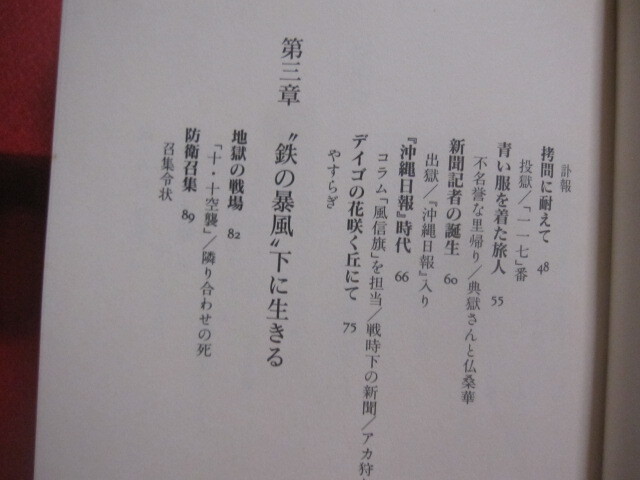 訃報
拷問に耐えて 48
投獄／「一一七」番
青い服を着た旅人 55
不名誉な里帰り／典獄さんと仏桑華
新聞記者の誕生 60
出獄／『沖縄日報』入り
『沖縄日報』時代 66
コラム「風信旗」を担当／戦時下の新聞／アカ狩
デイゴの花咲く丘にて 75
やすらぎ
第三章 〝鉄の暴風〟下に生きる
地獄の戦場 82
「十・十空襲」／隣り合わせの死
防衛召集 89
召集令状